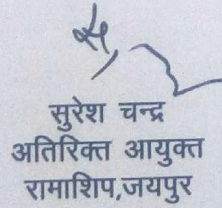 सुरेश चन्द्र
अतिरिक्त आयुक्त
रामाशिप,जयपुर